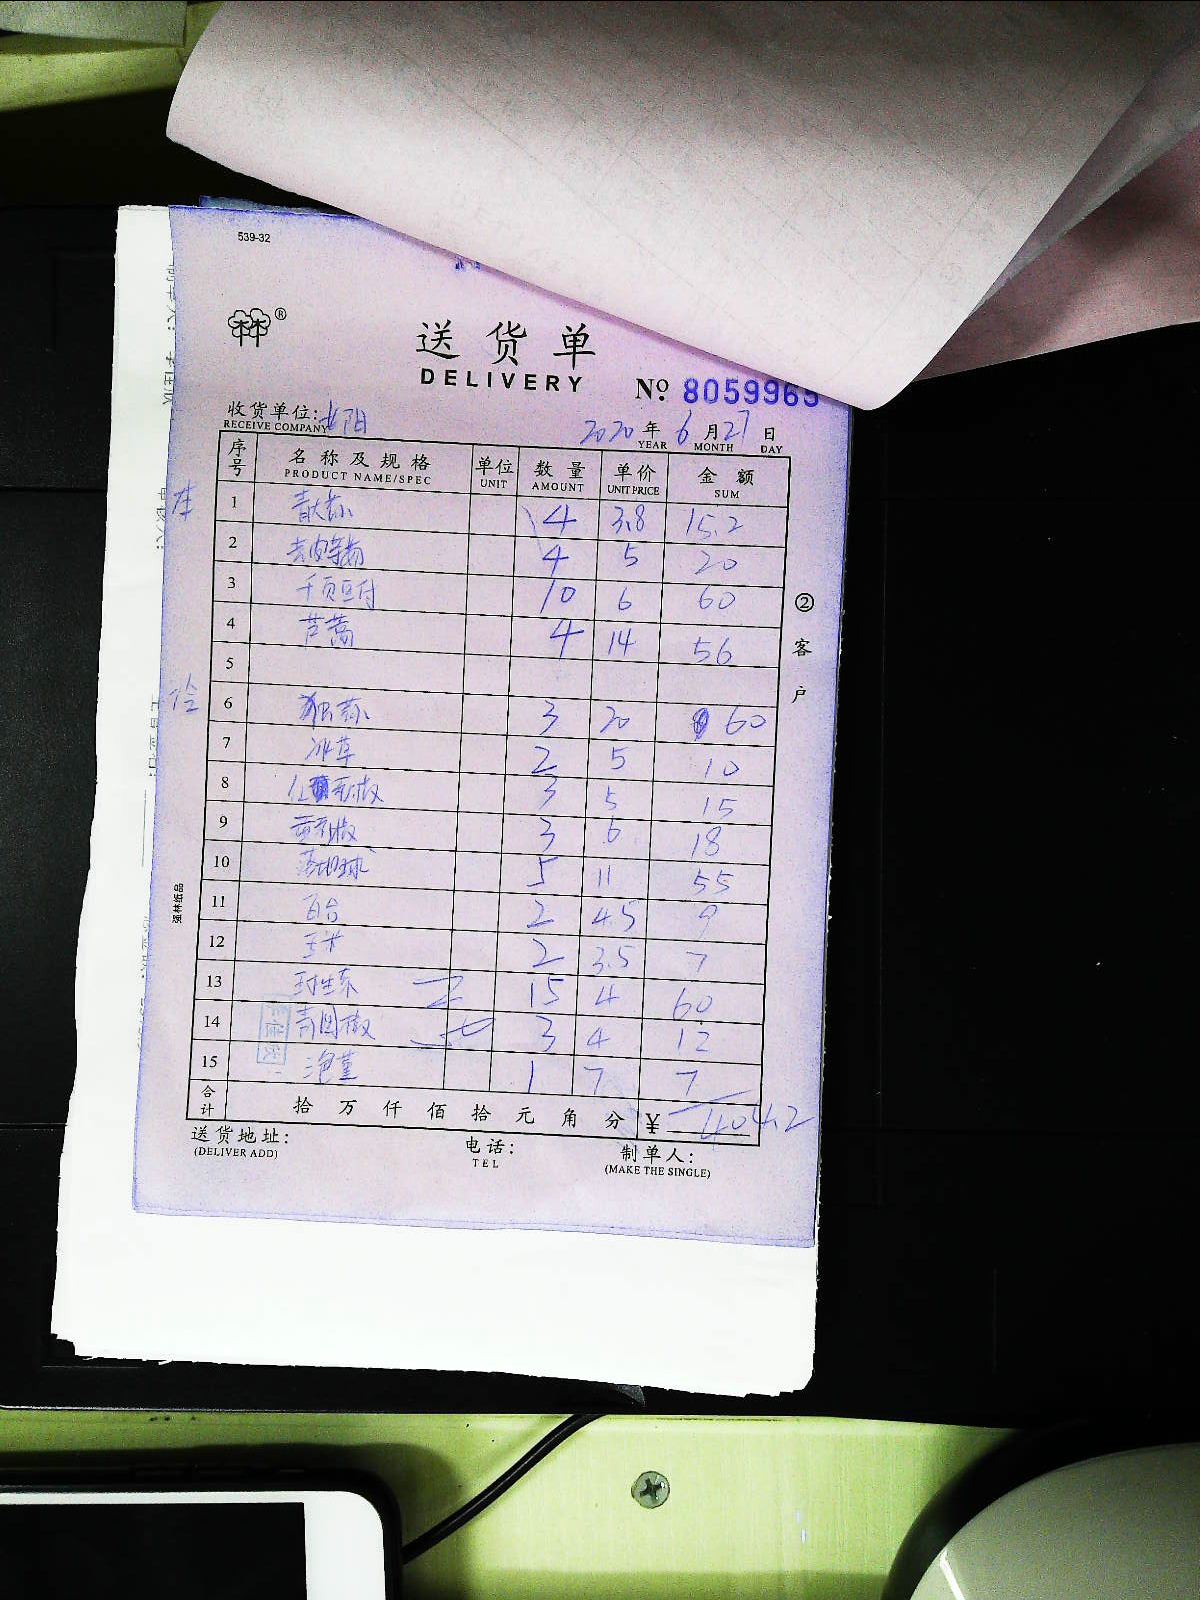 539-32
林林 ®
送货单
DELIVERY
№ 8059965
收货单位: 阳
RECEIVE COMPANY
2020 年 6 月 27 日
YEAR MONTH DAY
序号 名称及规格 单位 数量 单价 金额
PRODUCT NAME/SPEC UNIT AMOUNT UNIT PRICE SUM
1 青大蒜 4 3.8 15.2
2 4 5 20
3 千页豆付 10 6 60
4 芦蒿 4 14 56
5
冷
6 独蒜 3 20 60
7 冰草 2 5 10
8 3 5 15
9 3 6 18
10 5 11 55
11 百合 2 4.5 9
12 玉米 2 3.5 7
13 15 4 60
14 青园椒 3 4 12
15 1 7 7
合计 拾万仟佰拾元角分 ¥ 404.2
送货地址:
(DELIVER ADD)
电话:
TEL
制单人:
(MAKE THE SINGLE)
② 客户
强林纸品